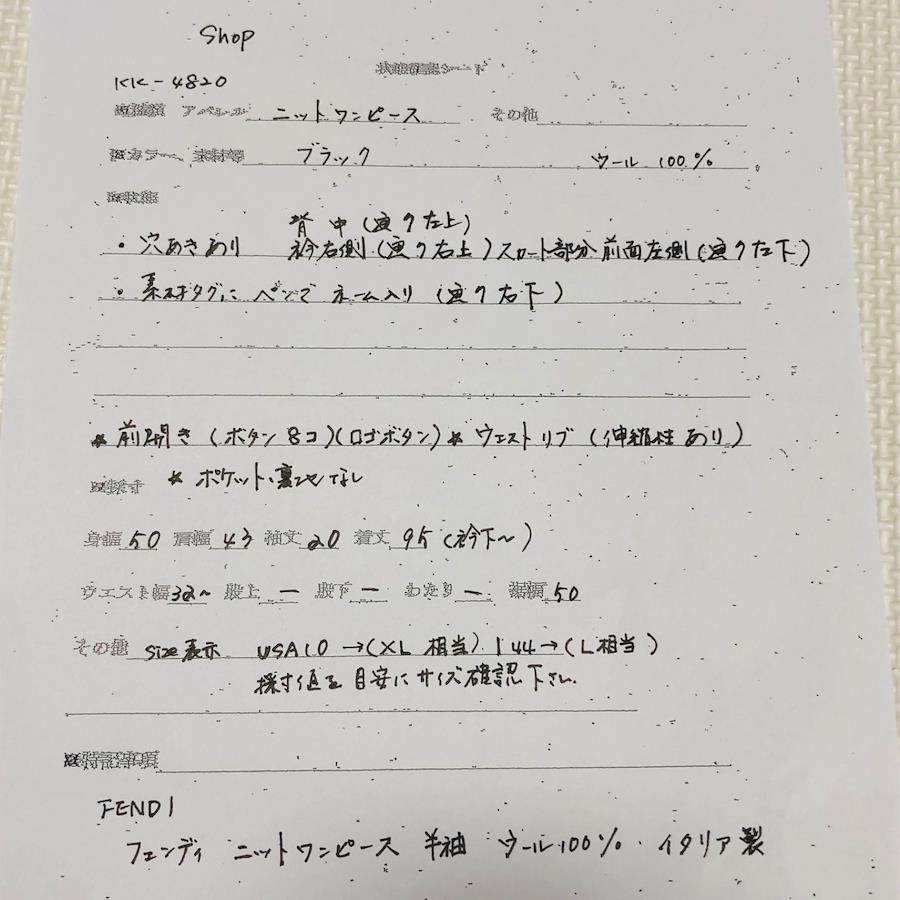 Shop
状態確認シート
KK-4820
アパレル ニットワンピース その他
カラー、素材等 ブラック ウール 100%
状態
背中(画ク左上)
・穴あきあり 衿右側(画ク右上)スカート部分前面左側(画ク左下)
・素材タグにペンでネーム入り(画ク右下)
* 前開き(ボタン8コ)(ロゴボタン)* ウエストリブ(伸縮性あり)
採寸 * ポケット・裏地なし
身幅 50 肩幅 43 袖丈 20 着丈 95(衿下~)
ウエスト幅 32~ 股上 - 股下 - わたり - 裾幅 50
その他 size表示 USA10→(XL相当) I44→(L相当)
採寸値を目安にサイズ確認下さい。
特記事項
FENDI
フェンディ ニットワンピース 半袖 ウール100%・イタリア製